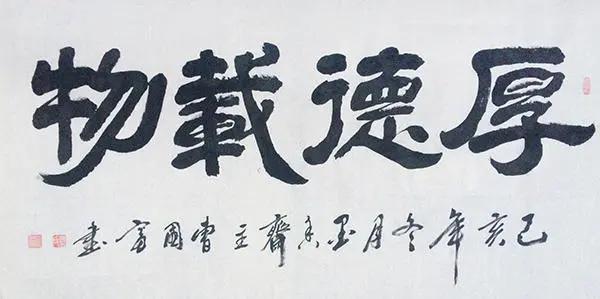 厚德載物
己亥年冬月墨香齋主曾國富書